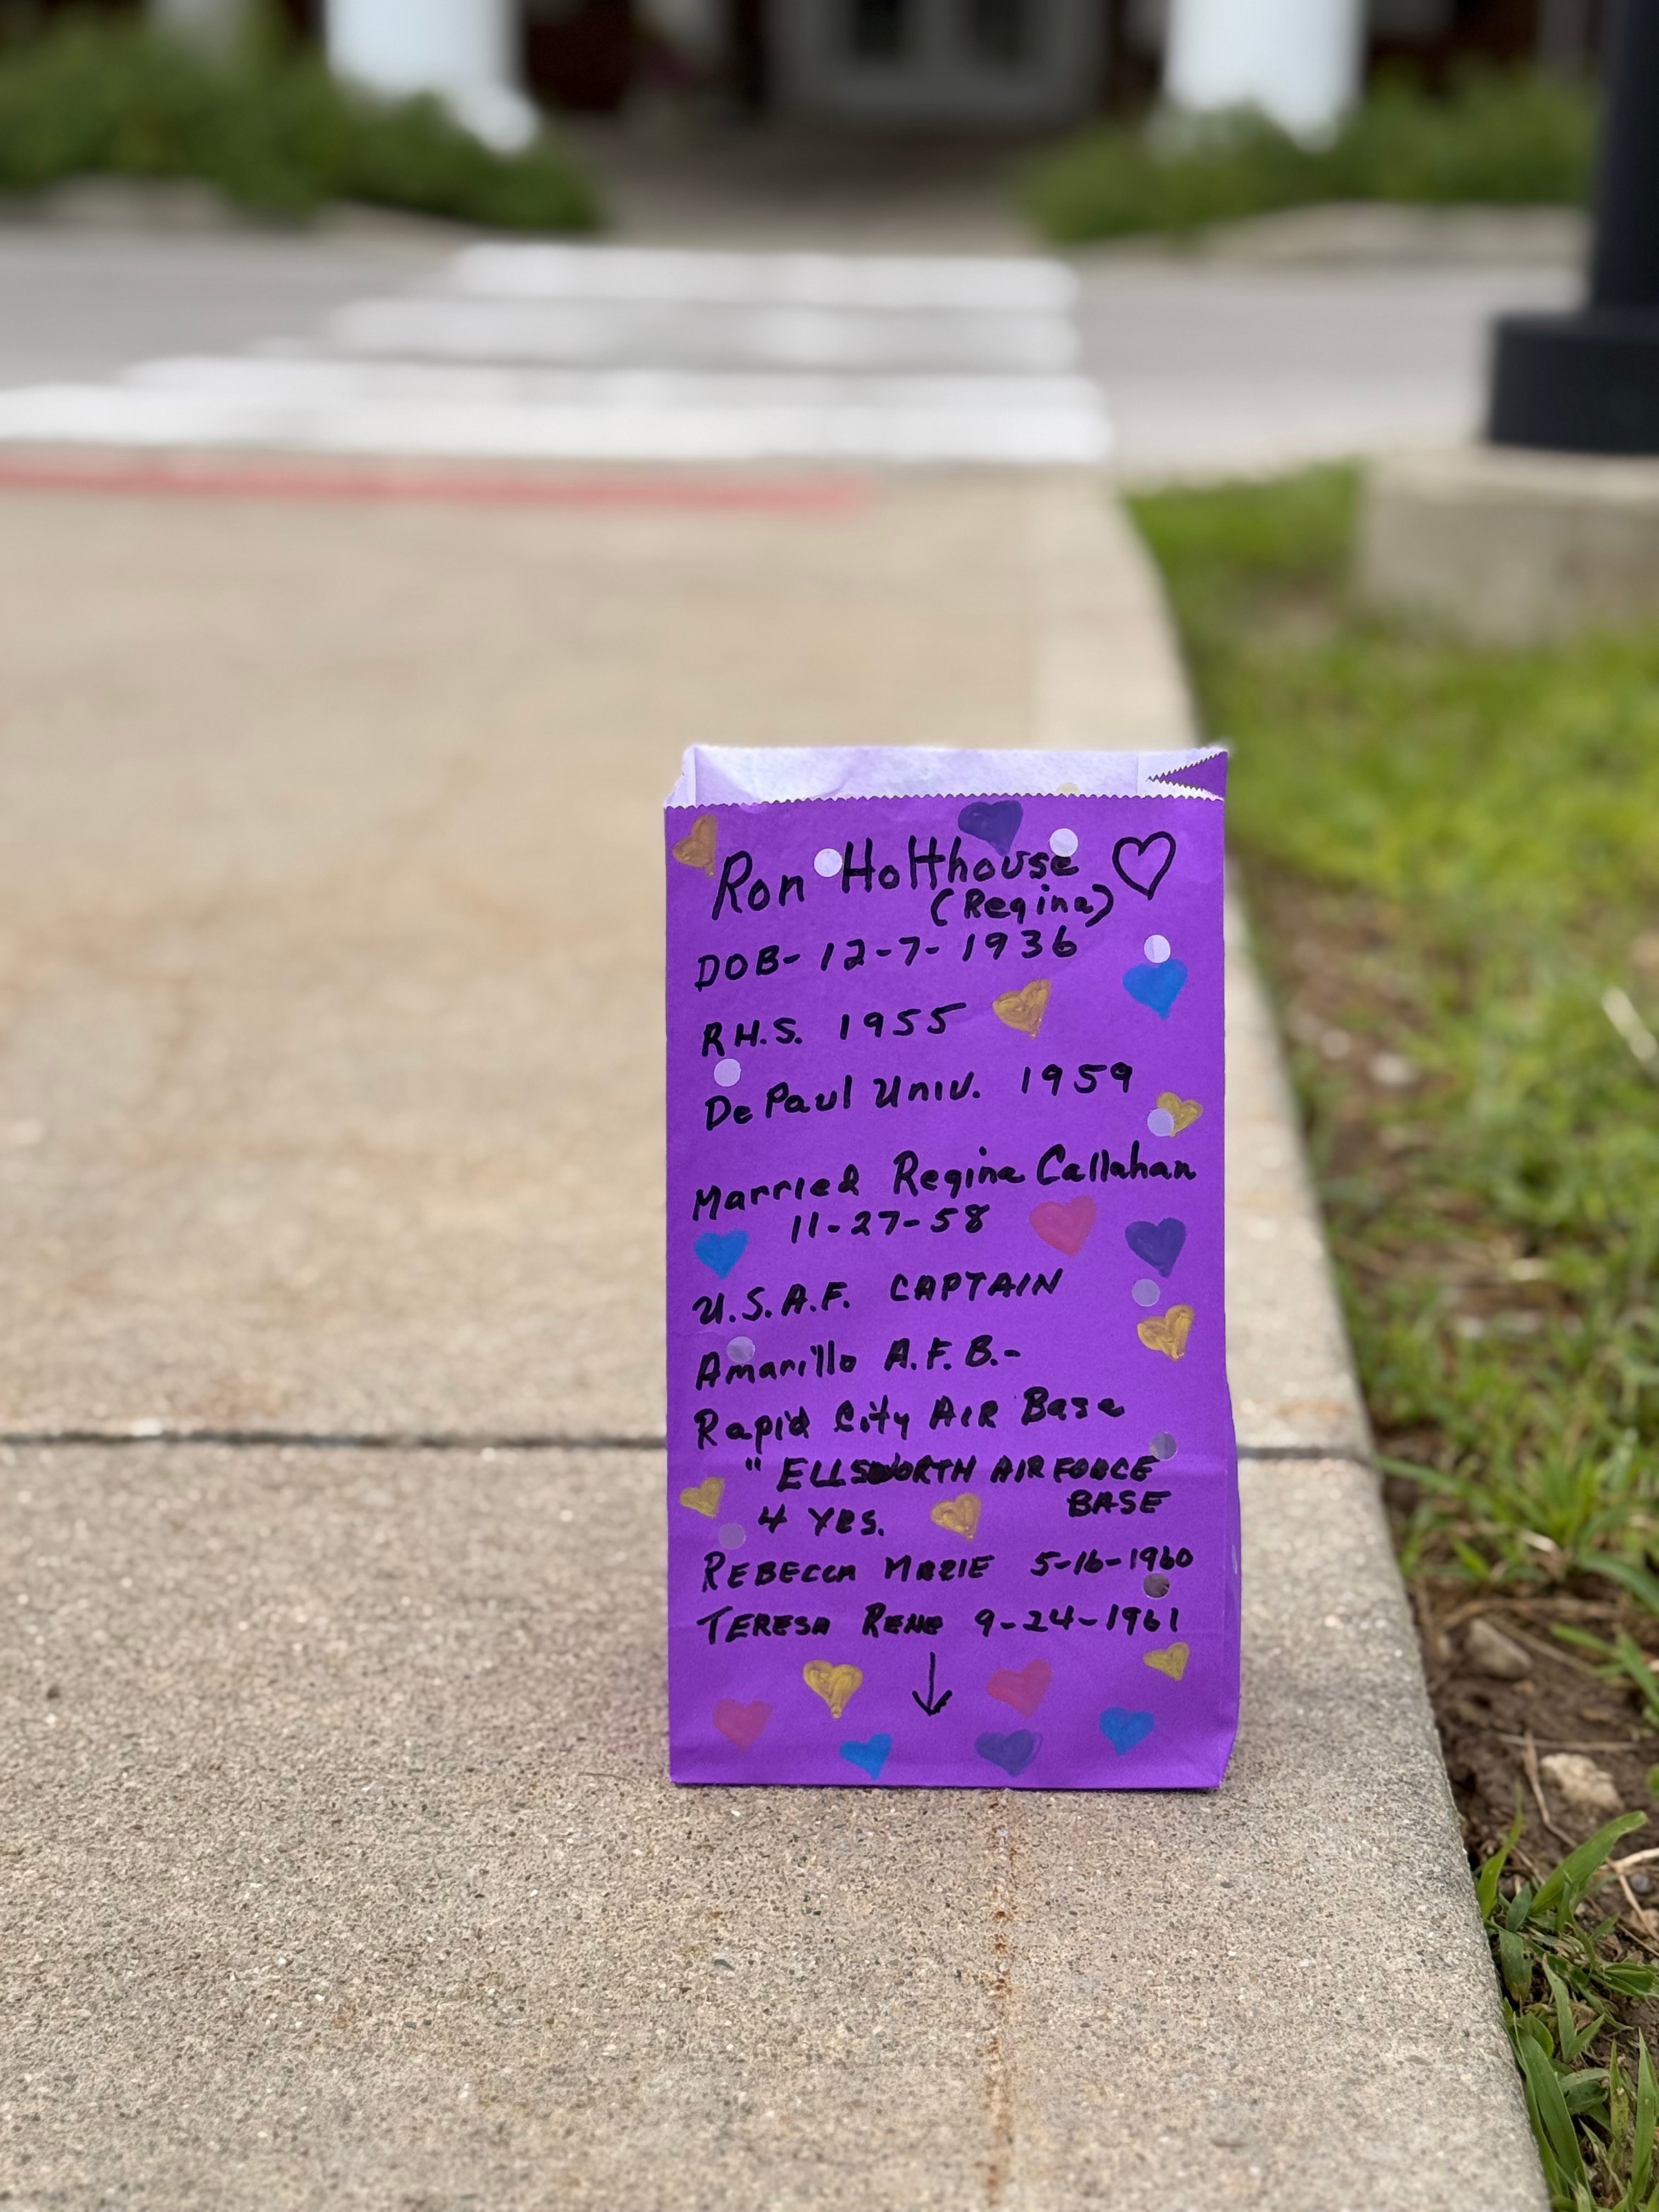 Ron Holthouse
(Regina)
DOB- 12-7-1936
R.H.S. 1955
DePaul Univ. 1959
Married Regina Callahan
11-27-58
U.S.A.F. CAPTAIN
Amarillo A.F.B.-
Rapid City AIR Base
" ELLSWORTH AIR FORCE
BASE
4 YRS.
REBECCA MARIE 5-16-1960
TERESA RENE 9-24-1961